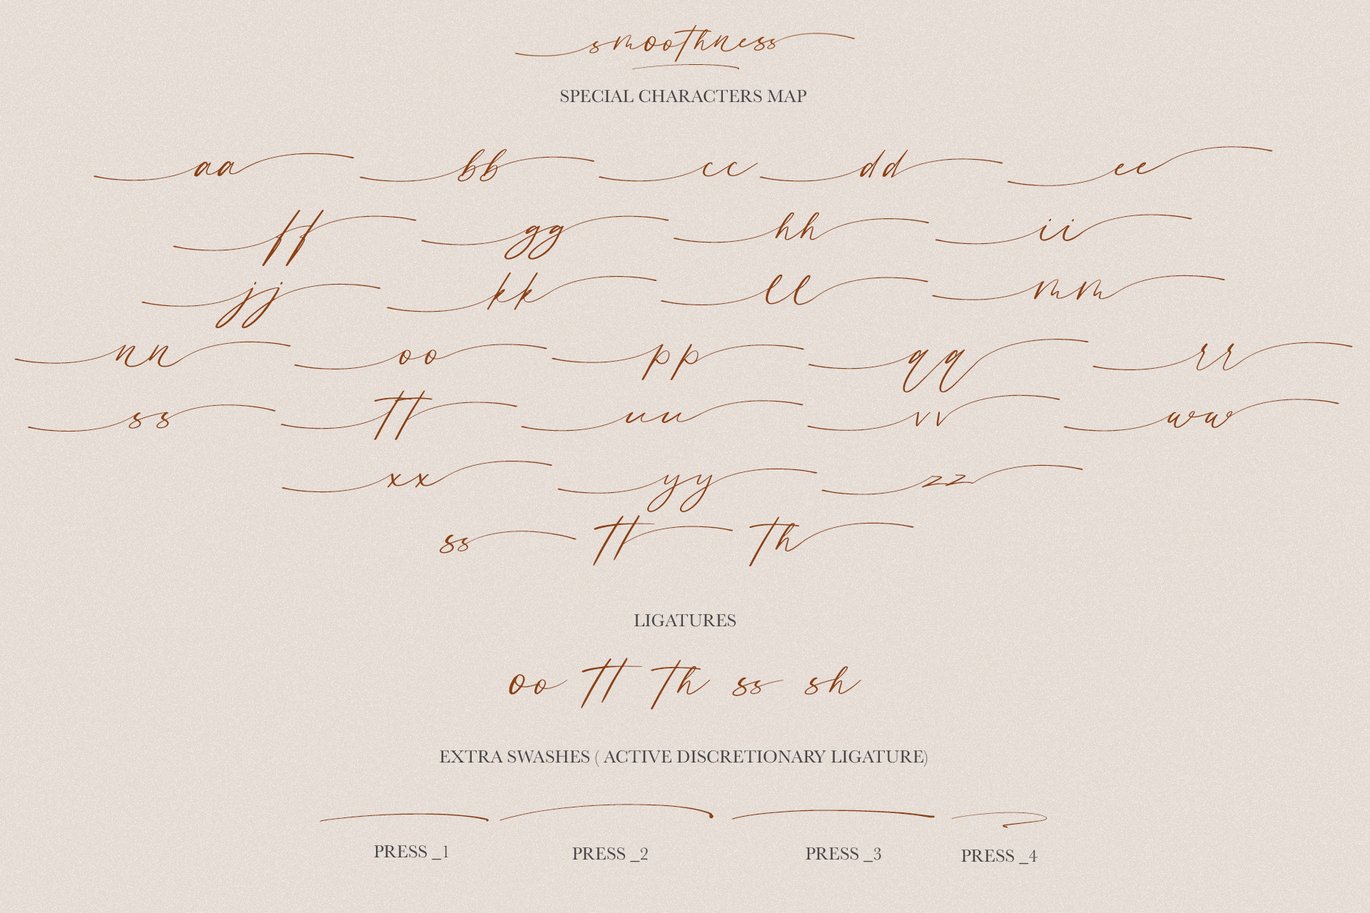 smoothness
SPECIAL CHARACTERS MAP
aa bb cc dd ee
ff gg hh ii
jj kk ll mm
nn oo pp qq rr
ss tt uu vv ww
xx yy zz
ss tt th
LIGATURES
oo tt th ss sh
EXTRA SWASHES ( ACTIVE DISCRETIONARY LIGATURE)
PRESS _1 PRESS _2 PRESS _3 PRESS _4